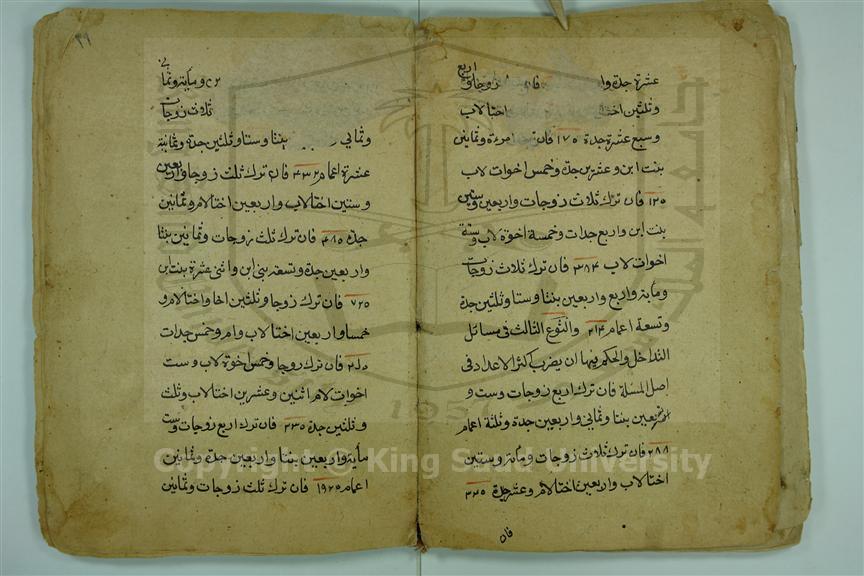 عشرة جدة فان زوجات واربع
وثلثين اختا لاب
وسبع عشرة جدة ١٧٥ فان ترك امرءة وثمانين
بنت ابن وعشرين جدة وخمس اخوات لاب
١٢٥ فان ترك ثلاث زوجات واربعين وستين
بنت ابن واربع جدات وخمسة اخوة لاب وستة
اخوات لاب ٣٨٤ فان ترك ثلاث زوجات
ومأية واربع واربعين بنتا وستا وثلثين جدة
وتسعة اعمام ٢١٤ والنوع الثالث فى مسائل
التداخل والحكم فيها ان يضرب اكثر الاعداد فى
اصل المسئلة فان ترك اربع زوجات وست و
اربعين بنتا وثمانى واربعين جدة وثلثة اعمام
٢٨٨ فان ترك ثلاث زوجات ومأية وستين
اختا لاب واربعين اختا لام وعشر جدة ٣٢٥
فان
٣٩
ومأية وثمانى
ثلاث زوجات
وثمانى بنتا وستا وثلثين جدة وثمانية
عشرة اعمام ٤٣٢ فان ترك ثلث زوجات واربعين
وستين اختا لاب واربعين اختا لام وثمانين
جدة ٤٨٥ فان ترك ثلث زوجات وثمانين بنتا
واربعين جدة وتسعة بنى ابن واثنى عشرة بنت ابن
٧٢٥ فان ترك زوجا وثلثين اخا واختا لام و
خمسا واربعين اختا لاب وام وخمس جدات
فان ترك زوجا وخمس اخوة لاب وست
اخوات لام اثنين وعشرين اختا لاب وثلث
وثلثين جدة ٣٣٥ فان ترك اربع زوجات وست
مأية واربعين بنتا واربعين جدة وثمانين
اعمام ١٩٢٥ فان ترك ثلث زوجات وثمانين
Copyright © King Saud University
1957